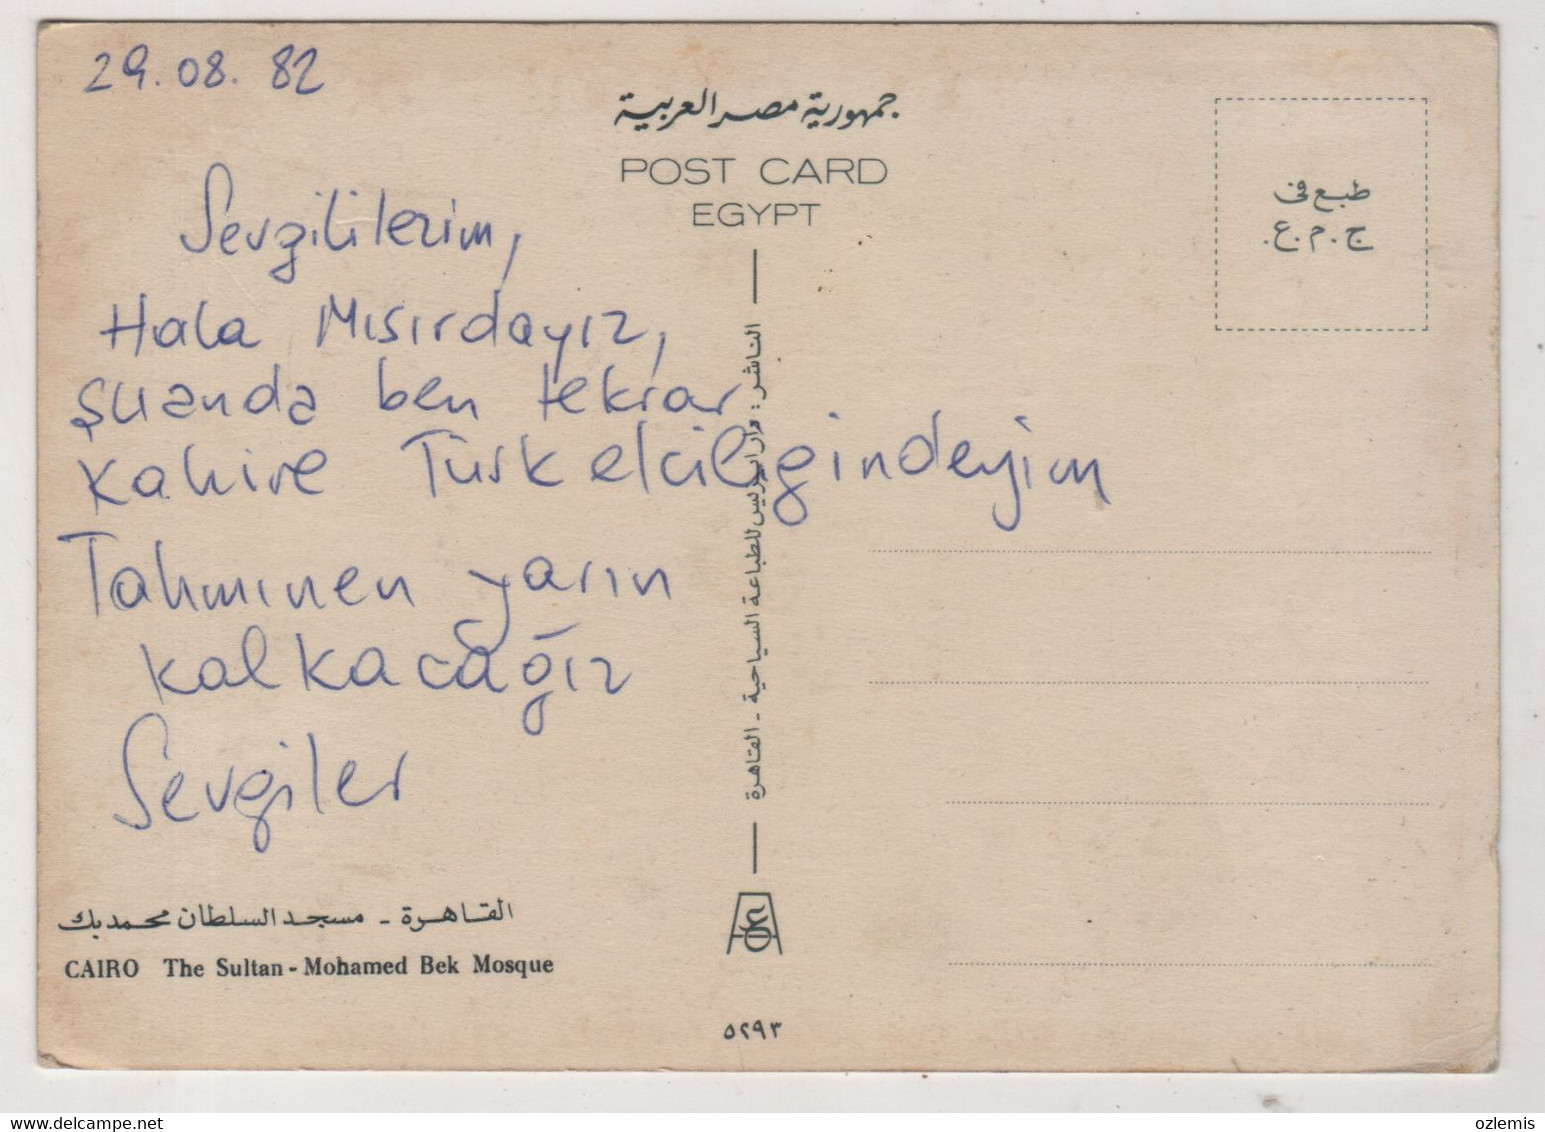 29.08.82
Sevgililerim,
Hala Mısırdayız,
şuanda ben tekrar
Kahire Türk elciligindeyim
Tahmınen yarın
kalkacağız
Sevgiler
جمهورية مصر العربية
POST CARD
EGYPT
طبع في
ج.م.ع.
الناشر: دار للطباعة السياحية - القاهرة
القاهرة - مسجد السلطان محمد بك
CAIRO The Sultan - Mohamed Bek Mosque
٥٢٩٣
ozlemis